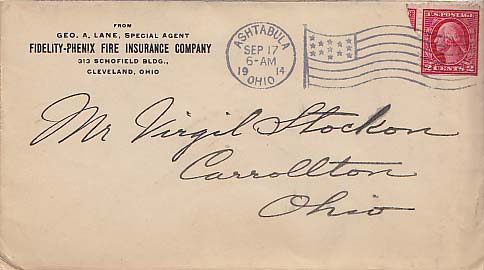 FROM
GEO. A, LANE, SPECIAL AGENT
FIDELITY-PHENIX FIRE INSURANCE COMPANY
313 SCHOFIELD BLDG.,
CLEVELAND, OHIO
ASHTABULA
SEP 17
6-AM
19 14
OHIO
U.S. POSTAGE
2 CENTS 2
Mr Virgil Stockon
Carrollton
Ohio